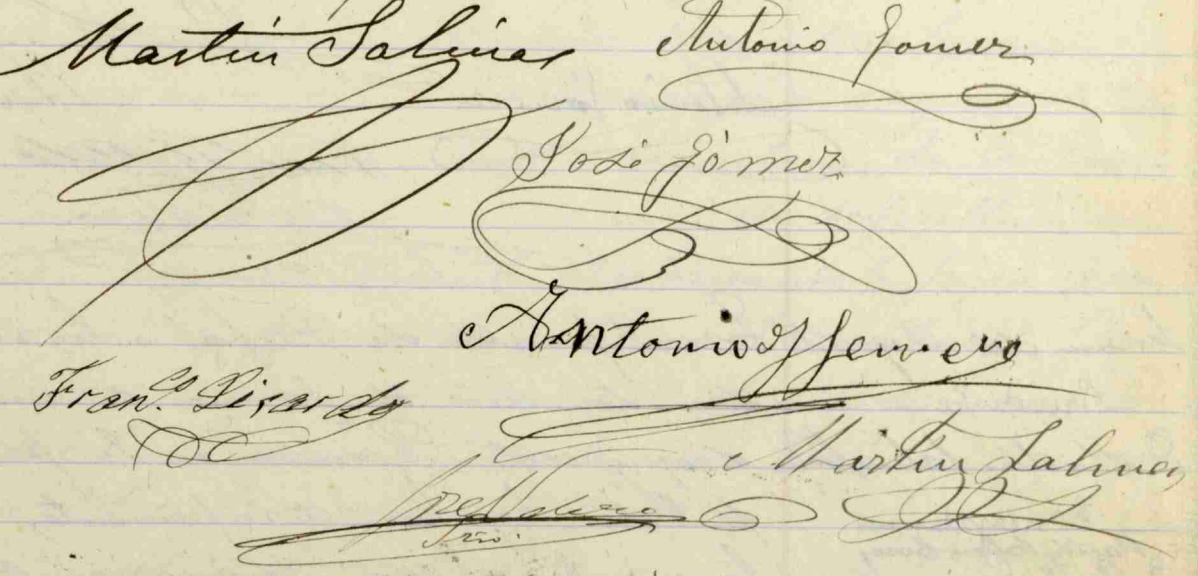 Martin Salinas
Antonio Gomez
José Gómez
Antonio Herrero
Fran.co Lizardo
Martin Salinas
Srio.